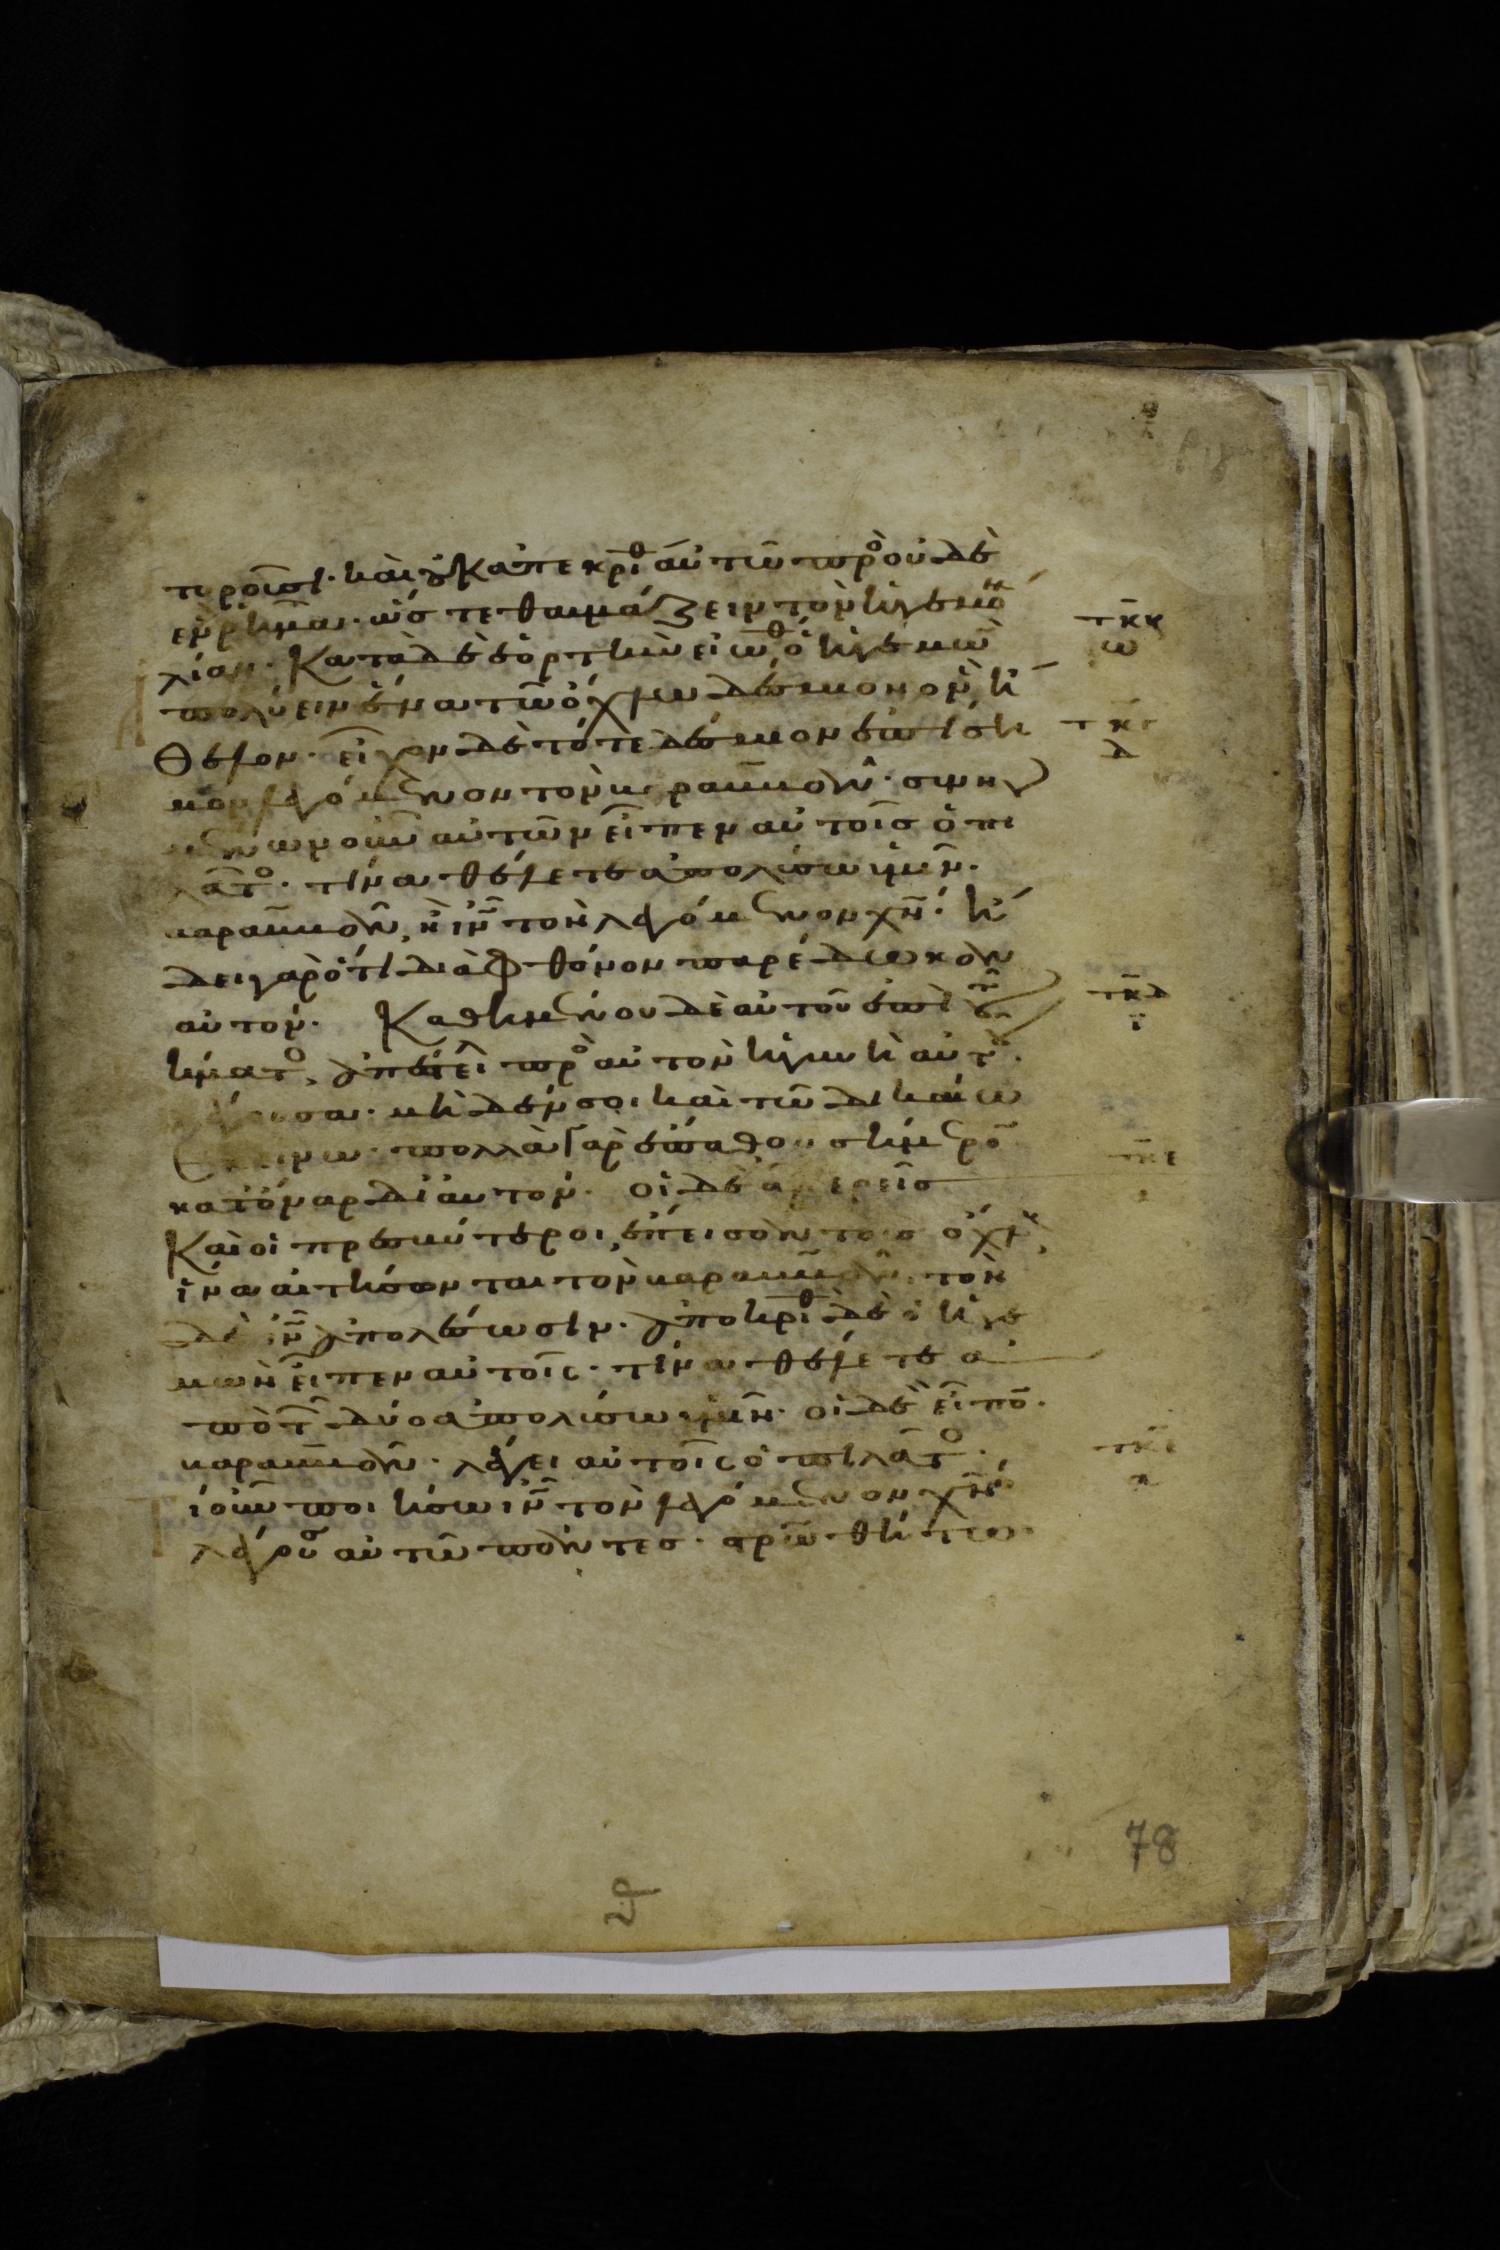 τυροῦσι· καὶ οὐκ ἀπεκρίθ αὐτῶ πρὸ οὐδὲ
ἓν ρῆμα· ὥστε θαυμάζειν τὸν ἡγεμό
λίαν· Κατὰ δὲ ἑορτὴν εἰώθ ὁ ἡγεμὼ
πολύειν ἕνα τῶ ὄχλω δέσμιον ὃν ἤ
θελον· εἶχον δὲ τότε δέσμιον ἐπίση
μον λεγόμενον τὸν βαραββᾶν· συνηγ
μένων οὖν αὐτῶν εἶπεν αὐτοῖς ὁ πι
λᾶτο· τίνα θέλετε ἀπολύσω ὑμῖν·
βαραββᾶν, ἢ ἰν̄ τὸν λεγόμενον χν̄· ἤ
δει γὰρ ὅτι διὰ φθόνον παρέδωκαν
αὐτόν· Καθημένου δὲ αὐτοῦ ἐπὶ τοῦ
βήματο, ἀπέστειλ πρὸ αὐτὸν ἡ γυνὴ αὐτοῦ·
λέγουσα· μηδέν σοι καὶ τῶ δικαίω
ἐκείνω· πολλὰ γὰρ ἔπαθον σήμερο
κατόναρ δι αὐτόν· οἱ δὲ ἀρχιερεῖς
Καὶ οἱ πρεσβύτεροι, ἔπεισαν τοὺς ὄχλ,
ἵνα αἰτήσωνται τὸν βαραββᾶν· τὸν
δὲ ἰν̄ ἀπολέσωσιν· ἀποκριθ δὲ ὁ ἡγε
μὼν εἶπεν αὐτοῖς· τίνα θέλετε ἀ
πὸ τ δύο ἀπολύσω ὑμῖν· οἱ δὲ εἶπο·
βαραββᾶν· λέγει αὐτοῖς ὁ πιλᾶτο·
ί οὖν ποιήσω ἰν̄ τὸν λεγόμενον χν̄·
λέγου αὐτῶ πάντες· στρωθήτω·
τκδ
ι
78